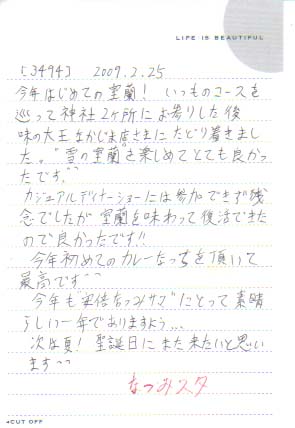 LIFE IS BEAUTIFUL
[3494] 2009.2.25
今年はじめての室蘭! いつものコースを
巡って神社2ヶ所にお参りした後
味の大王なかじま店さまにたどり着きまし
た。"雪の室蘭"を楽しめてとても良かっ
たです^^
カジュアルディナーショーには参加できず残
念でしたが室蘭を味わって復活できた
ので良かったです!!
今年初めてのカレーなっちを頂いて
最高です^^
今年も なつみサマ"にとって素晴
らしい一年でありますよう...
次は夏! 聖誕日にまた来たいと思い
ます^^
なつみスタ
CUT OFF